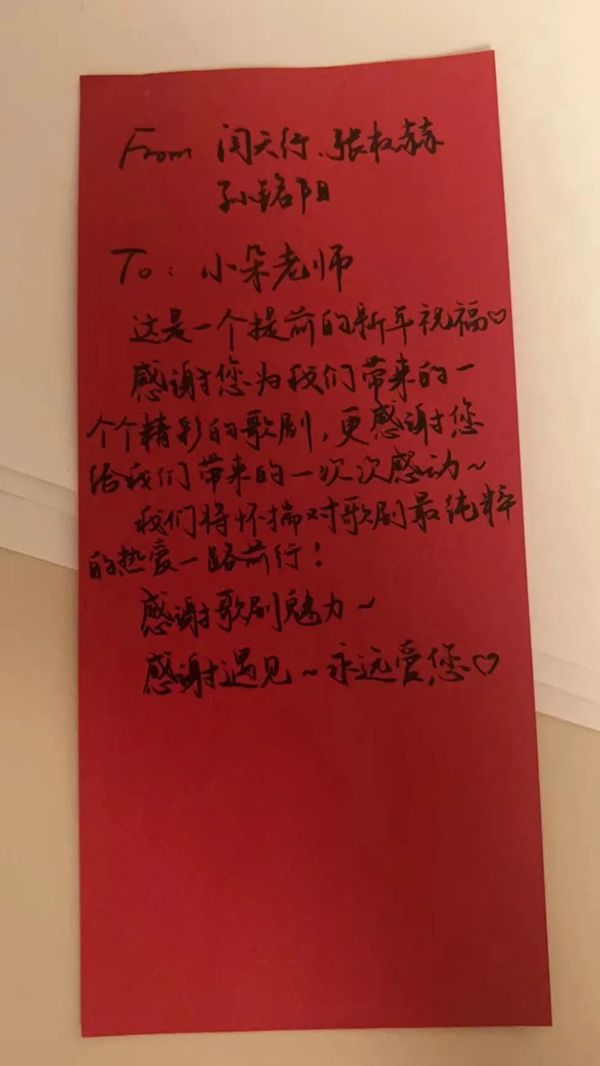 From 闫天行、张权赫
孙铭阳
To: 小朵老师
这是一个提前的新年祝福♡
感谢您为我们带来的一
个个精彩的歌剧,更感谢您
给我们带来的一次次感动~
我们将怀揣对歌剧最纯粹
的热爱一路前行!
感谢歌剧魅力~
感谢遇见~永远爱您♡